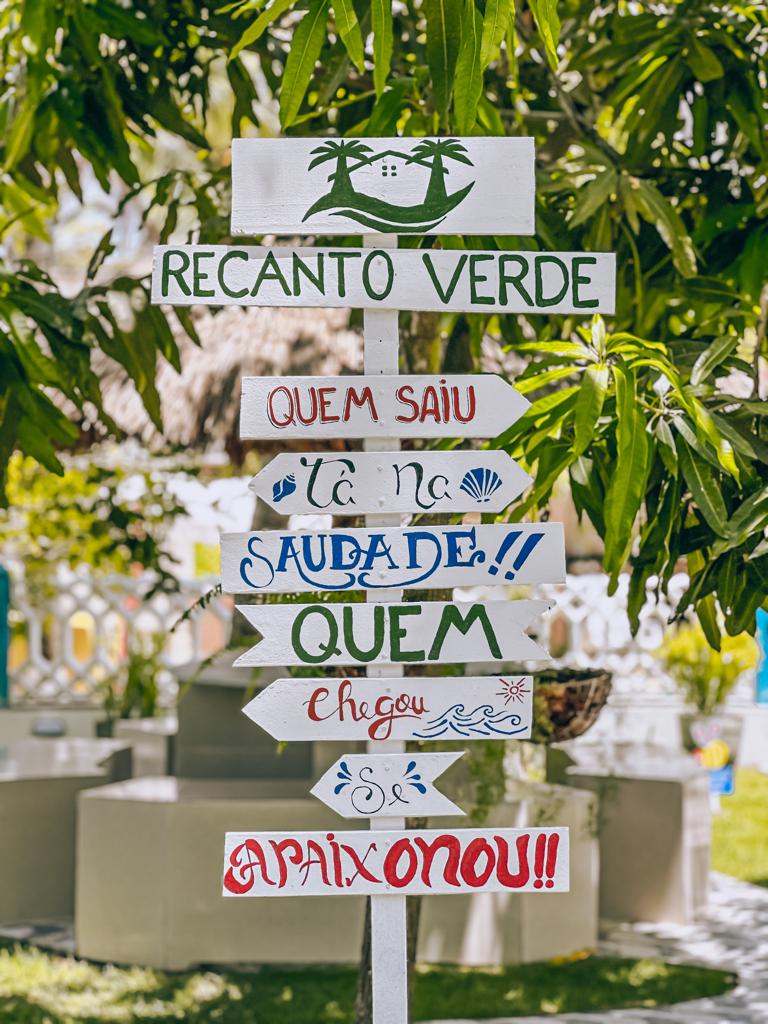 RECANTO VERDE
QUEM SAIU
Tà Na
SAUDADE!!
QUEM
Chegou
Se
APAIXONOU!!